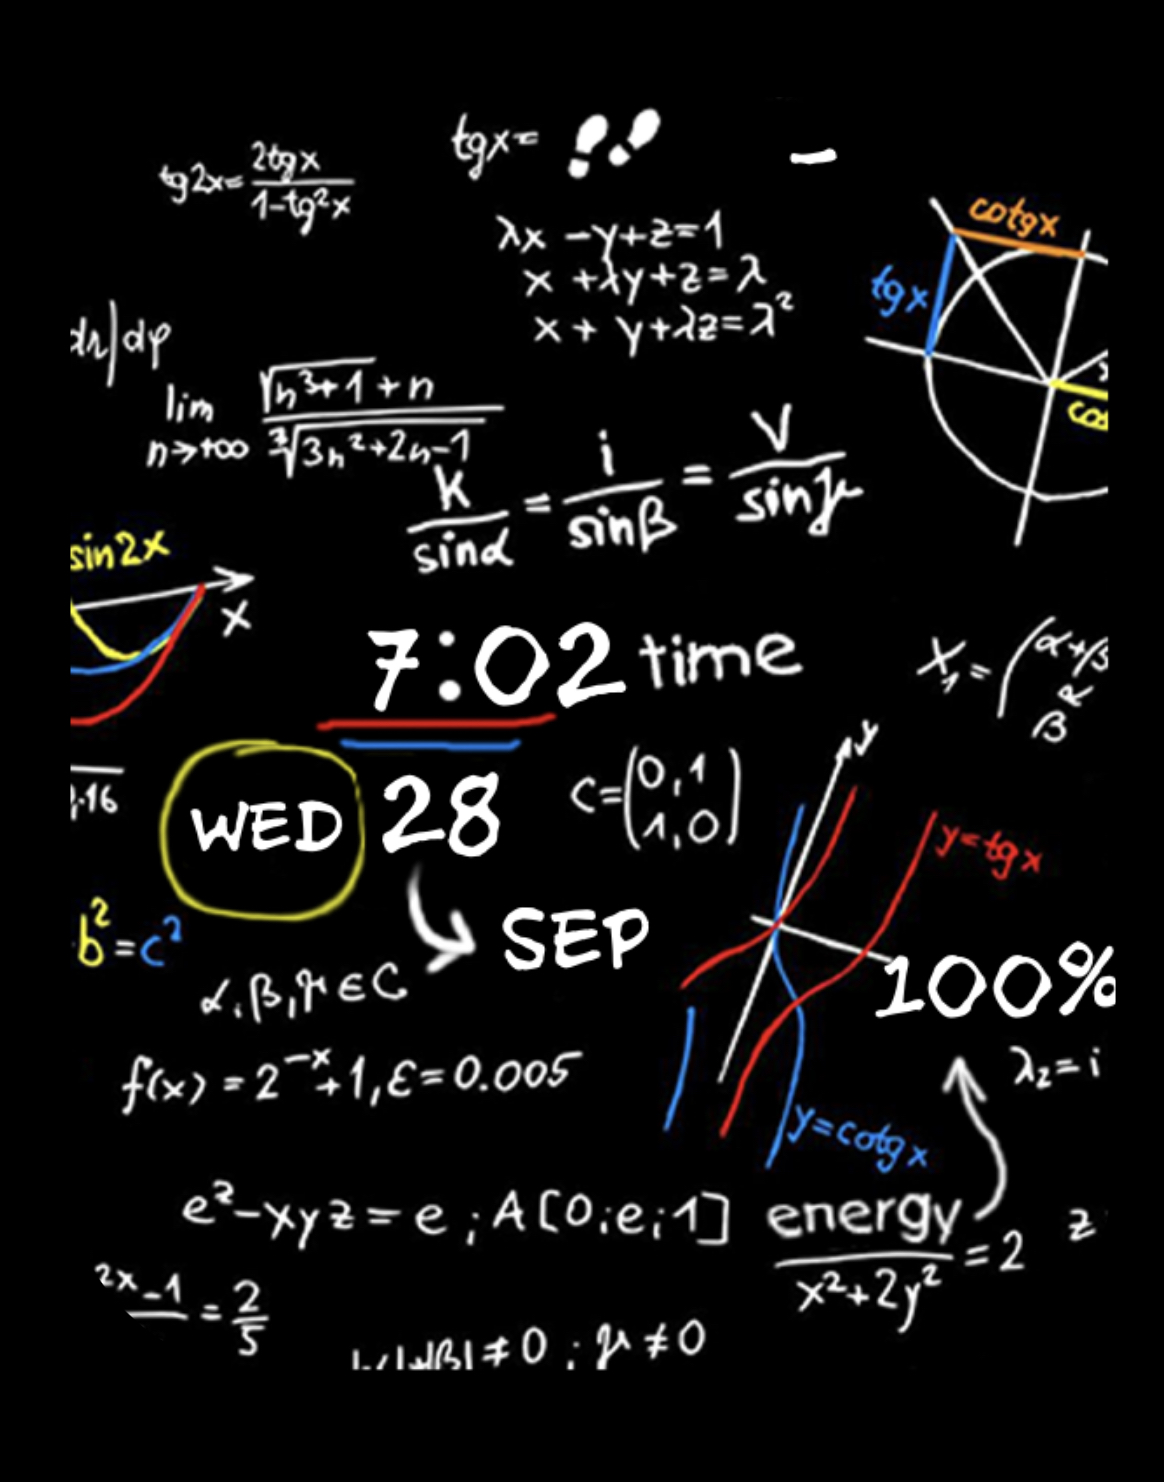 tgx=
–
tg2x= 2tgx / 1-tg²x
cotgx
λx -y+z=1
x +λy+z=λ
x + y+λz=λ²
tgx
dr|dφ
lim n→+∞ √n³+1 + n / ³√3n²+2n-1
k/sinα = i/sinβ = V/sinγ
sin2x
x
7:02 time
X₁=(α+β
α
β
.16
WED 28
C=(0,1
1,0)
y
y=tgx
b²=c²
SEP
100%
α,β,γ∈C
λ₂=i
f(x)=2⁻ˣ+1,ε=0.005
y=cotgx
e²-xyz=e;A[0;e;1]
energy / x²+2y² =2
z
2x-1 = 2/5
≠0;γ≠0